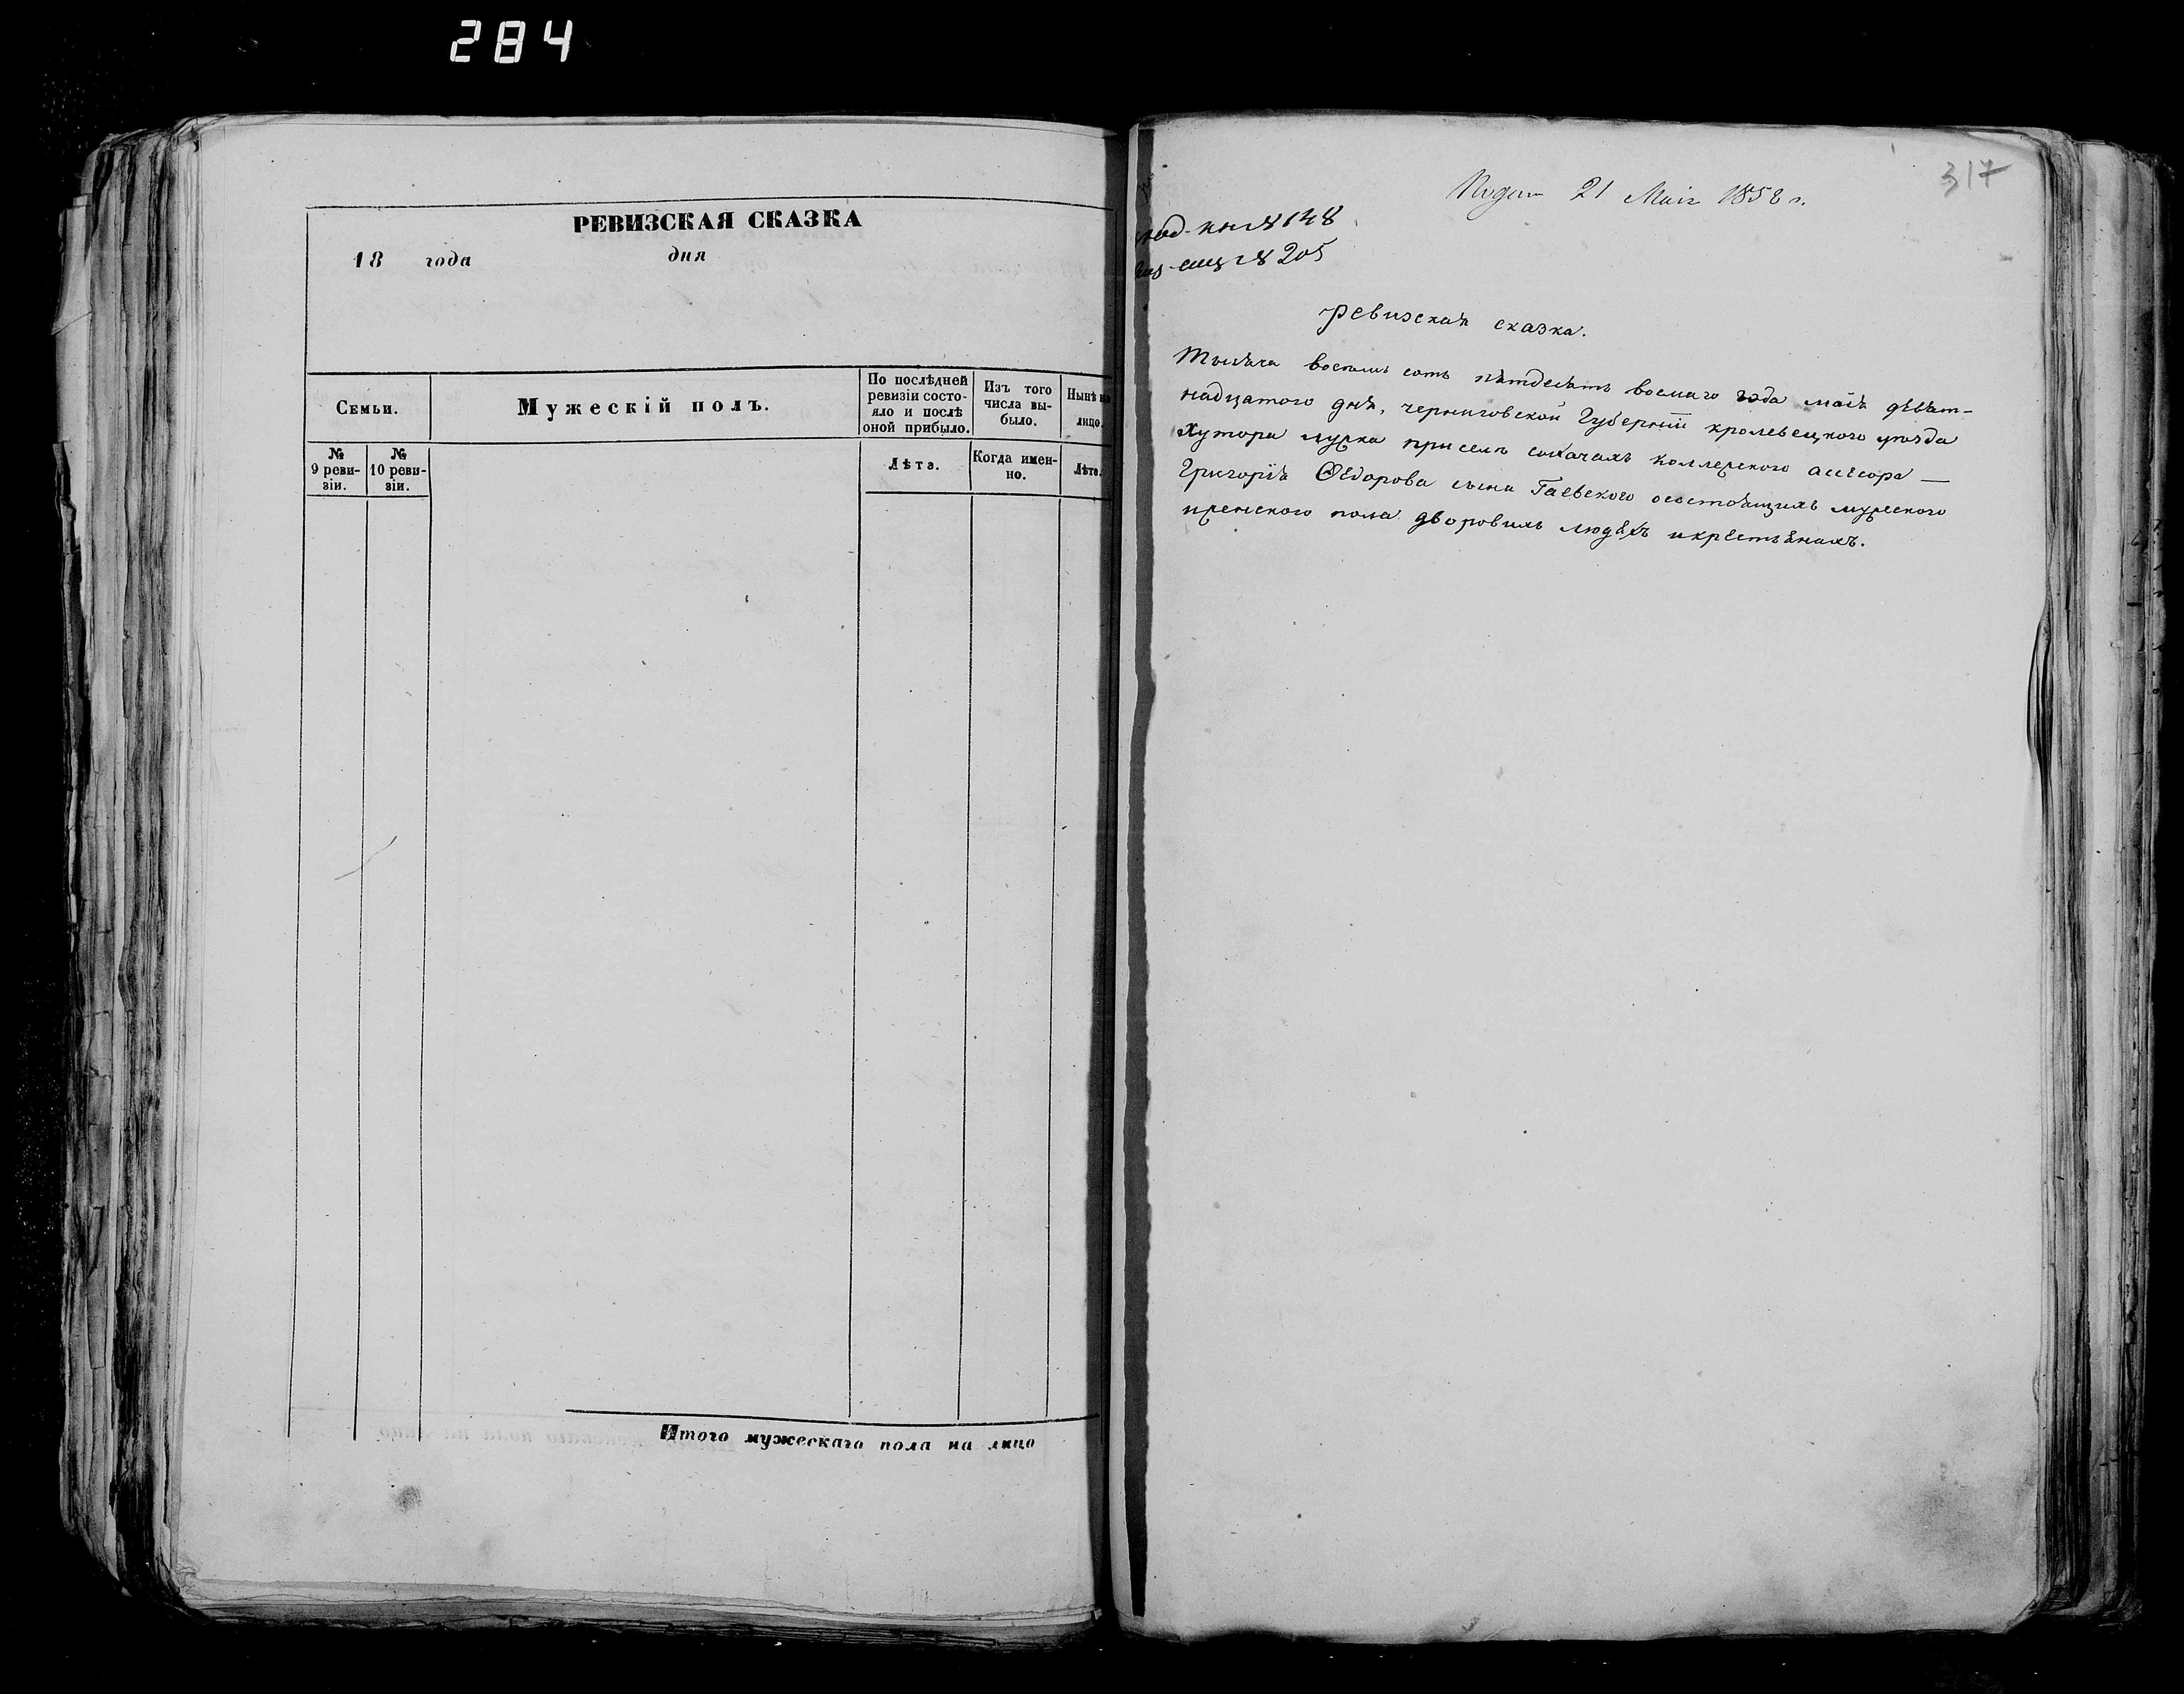 284
РЕВИЗСКАЯ СКАЗКА
18 года дня
Семьи.
Мужескій полъ.
По послѣдней ревизіи состояло и послѣ оной прибыло.
Изъ того числа выбыло.
Нынѣ на лицо.
№ 9 ревизіи.
№ 10 ревизіи.
Лѣта.
Когда именно.
Лѣта.
Итого мужескаго пола на лицо
317
21 Маія 1858 г.
кн № 148
№ 205
Ревизская сказка.
Тысяча восемь сотъ пятдесятъ восмаго года маія девят-
надцатого дня, черниговской Губерніи кролевецкого уезда
Хутора при селе коллежского асесора —
Григорія Ѳедорова сына Гаевского о состоящихъ мужеского
и женского пола дворовыхъ людяхъ и крестьянахъ.